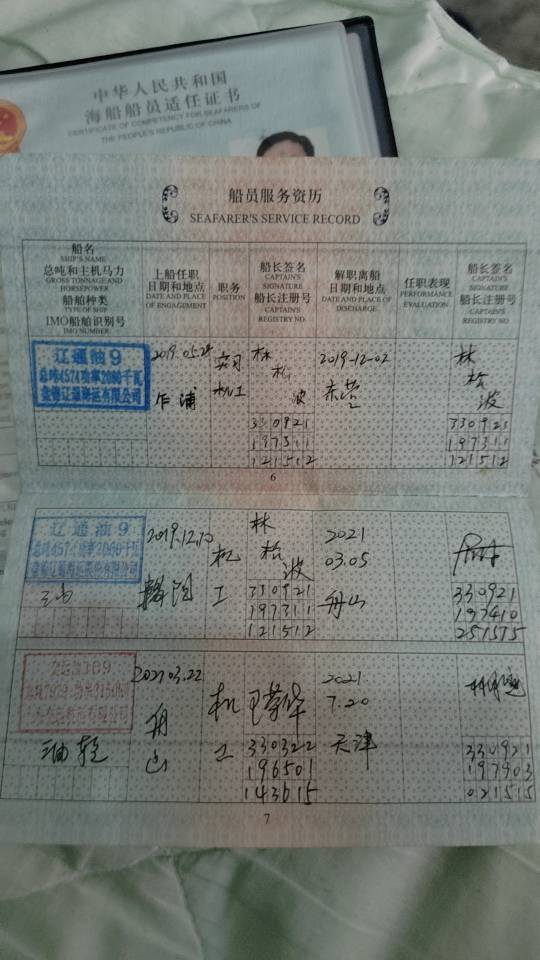 中华人民共和国
海船船员适任证书
CERTIFICATE OF COMPETENCY FOR SEAFARERS OF
THE PEOPLE'S REPUBLIC OF CHINA
船员服务资历
SEAFARER'S SERVICE RECORD
船名
SHIP'S NAME
总吨和主机马力
GROSS TONNAGE AND
HORSEPOWER
船舶种类
TYPE OF SHIP
IMO船舶识别号
IMO NUMBER
上船任职
日期和地点
DATE AND PLACE
OF ENGAGEMENT
职务
POSITION
船长签名
CAPTAIN'S
SIGNATURE
船长注册号
CAPTAIN'S
REGISTRY NO.
解职离船
日期和地点
DATE AND PLACE OF
DISCHARGE
任职表现
PERFORMANCE
EVALUATION
船长签名
CAPTAIN'S
SIGNATURE
船长注册号
CAPTAIN'S
REGISTRY NO.
辽通油9
总吨4574功率2060千瓦
盘锦辽通海运有限公司
2019.05.24
乍浦
实习
机工
林松波
330921
197311
121512
2019-12-02
东营
林松波
330921
197311
121512
6
辽通油9
总吨4574功率2060千瓦
2019.12.
机工
林松波
330921
197311
121512
2021
03.05
舟山
330921
197410
251515
2021.03.22
舟山
油轮
机工
王荣华
330322
196501
143615
2021
7.20
天津
330921
197903
021515
7